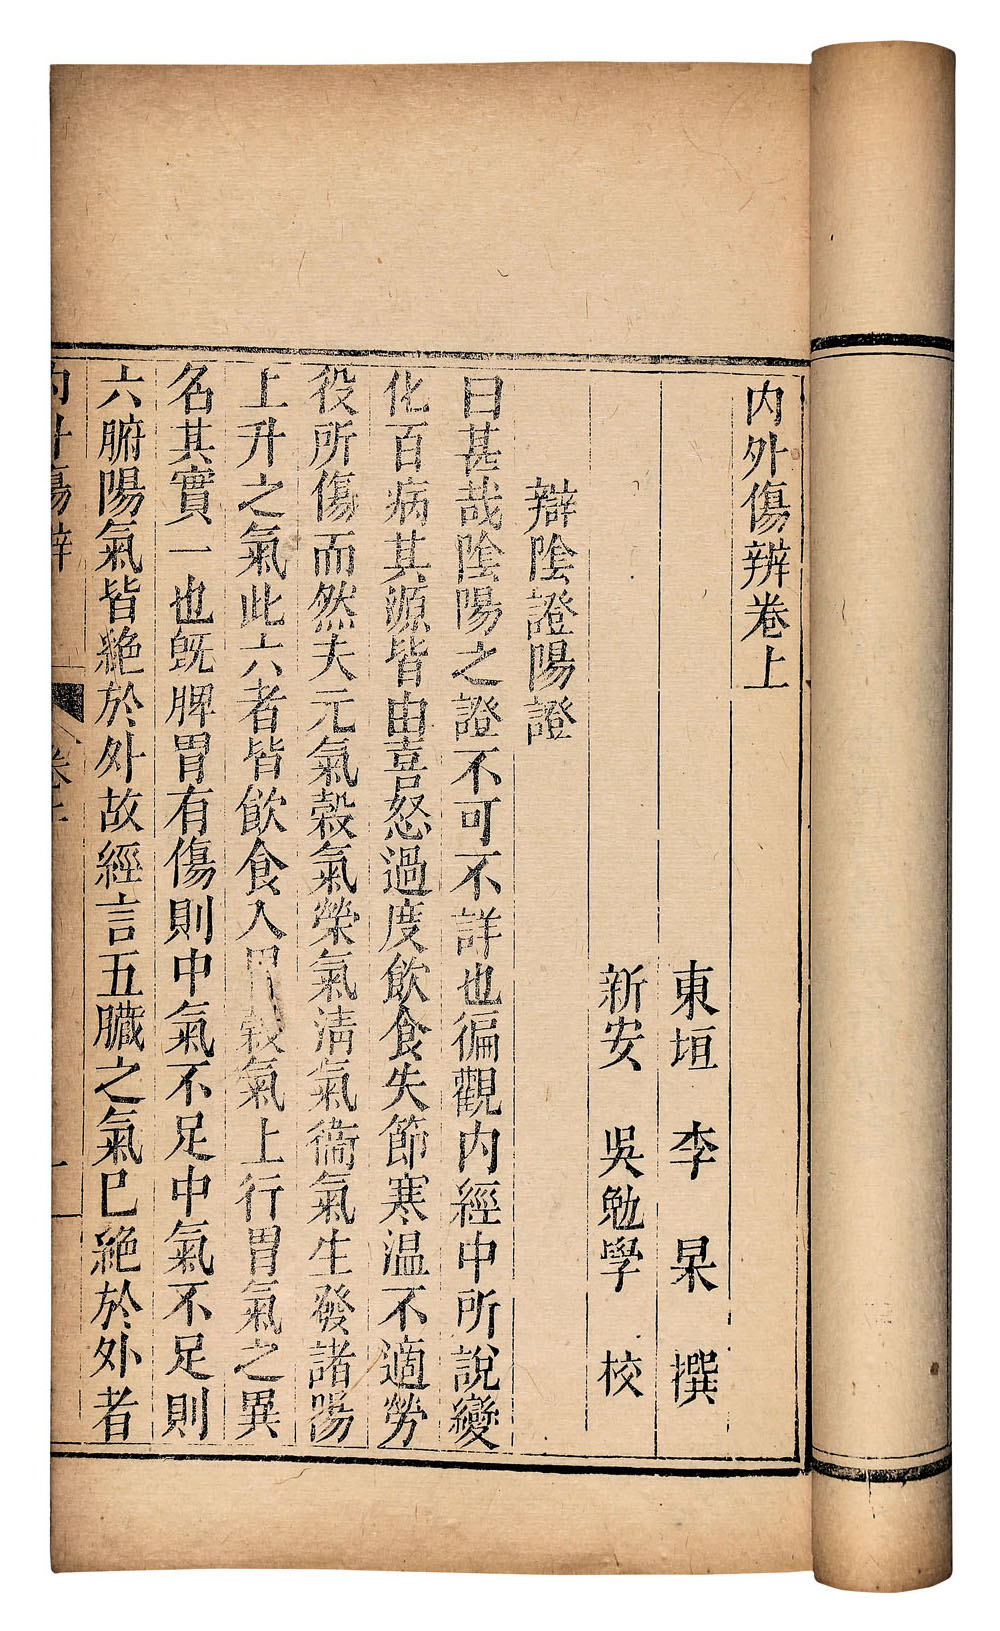 内外傷辨卷上
東垣 李 杲 撰
新安 吳勉學 校
辯陰證陽證
曰甚哉陰陽之證不可不詳也徧觀内經中所說變
化百病其源皆由喜怒過度飲食失節寒温不適勞
役所傷而然夫元氣穀氣榮氣淸氣衞氣生發諸陽
上升之氣此六者皆飲食入胃穀氣上行胃氣之異
名其實一也旣脾胃有傷則中氣不足中氣不足則
六腑陽氣皆絶於外故經言五臟之氣巳絶於外者
内外傷辨 卷上 一